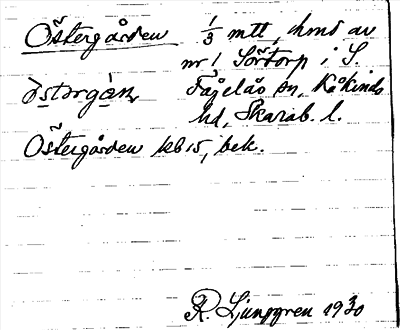 Östergården 1/3 mtt, hmd av
nr 1 Sörtorp i S.
Fågelås sn, Kåkinds
hd, Skarab. l.
Östergården kb 15, bek.
R. Ljunggren 1930